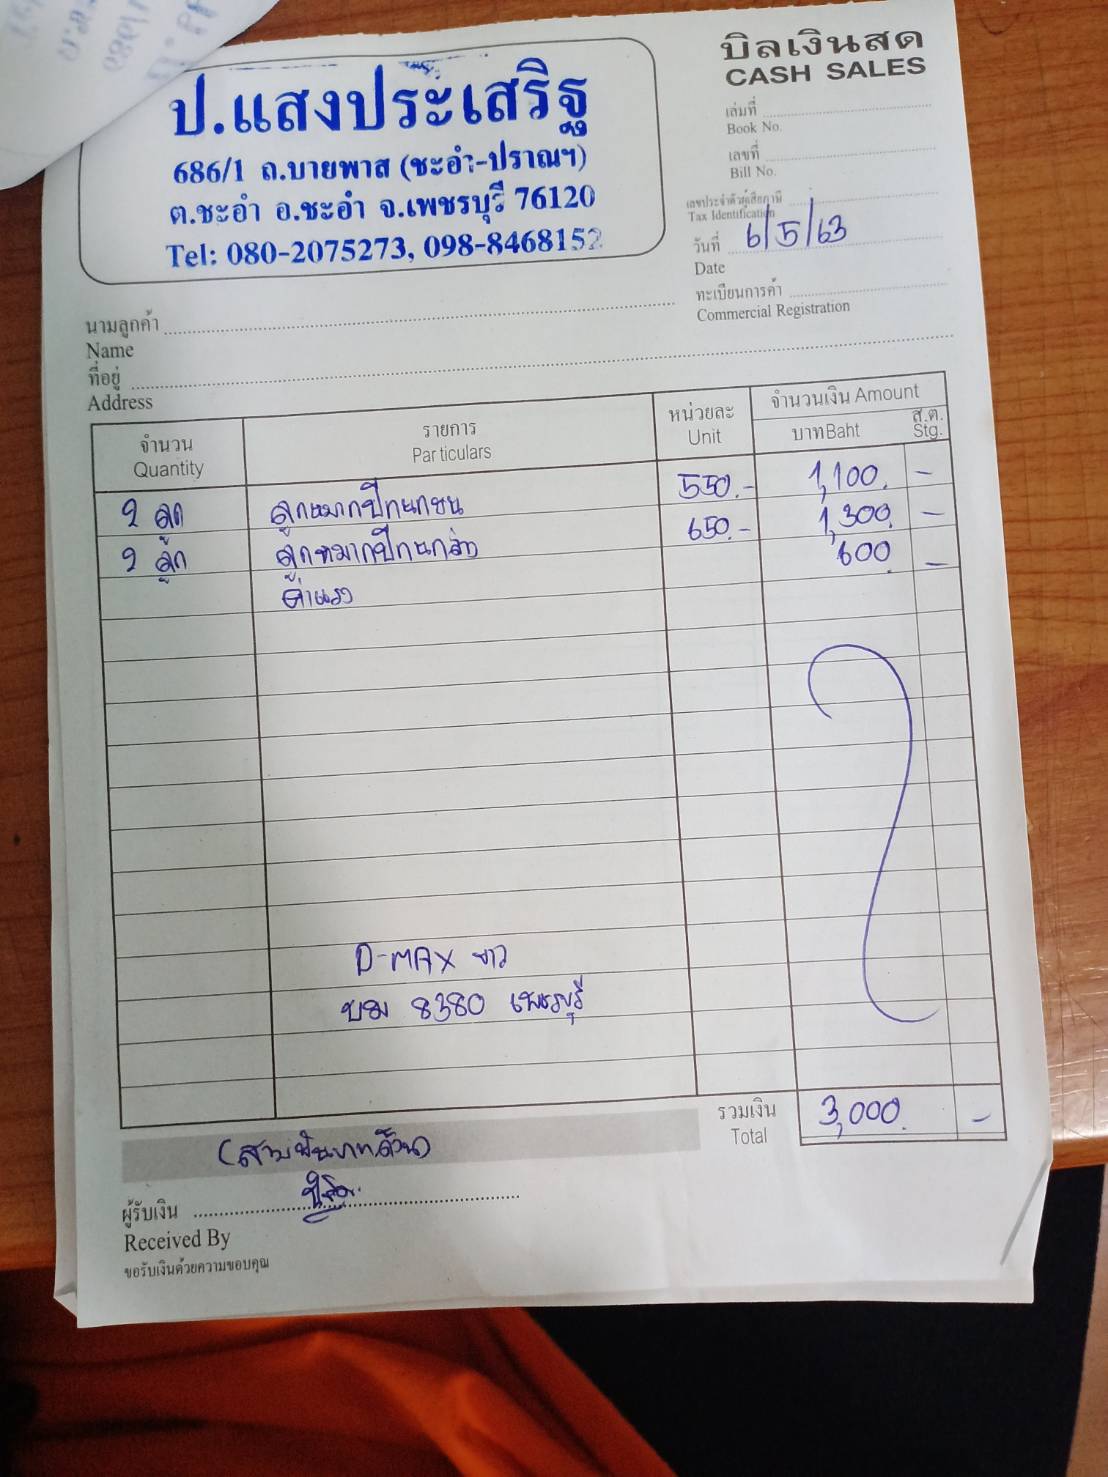 บิลเงินสด
CASH SALES
ป.แสงประเสริฐ
686/1 ถ.บายพาส (ชะอำ-ปราณฯ)
ต.ชะอำ อ.ชะอำ จ.เพชรบุรี 76120
Tel: 080-2075273, 098-8468152
เล่มที่
Book No.
เลขที่
Bill No.
เลขประจำตัวผู้เสียภาษี
Tax Identification
วันที่ 6/5/63
Date
ทะเบียนการค้า
Commercial Registration
นามลูกค้า
Name
ที่อยู่
Address
จำนวน รายการ หน่วยละ จำนวนเงิน Amount
Quantity Particulars Unit บาท Baht ส.ต. Stg.
2 ลูก ลูกหมากปีกนกบน 550.- 1,100.-
2 ลูก ลูกหมากปีกนกล่าง 650.- 1,300.-
ค่าแรง 600.-
D-MAX ขาว
บม 8380 เพชรบุรี
รวมเงิน 3,000.-
Total
(สามพันบาทถ้วน)
ผู้รับเงิน
Received By
ขอรับเงินด้วยความขอบคุณ